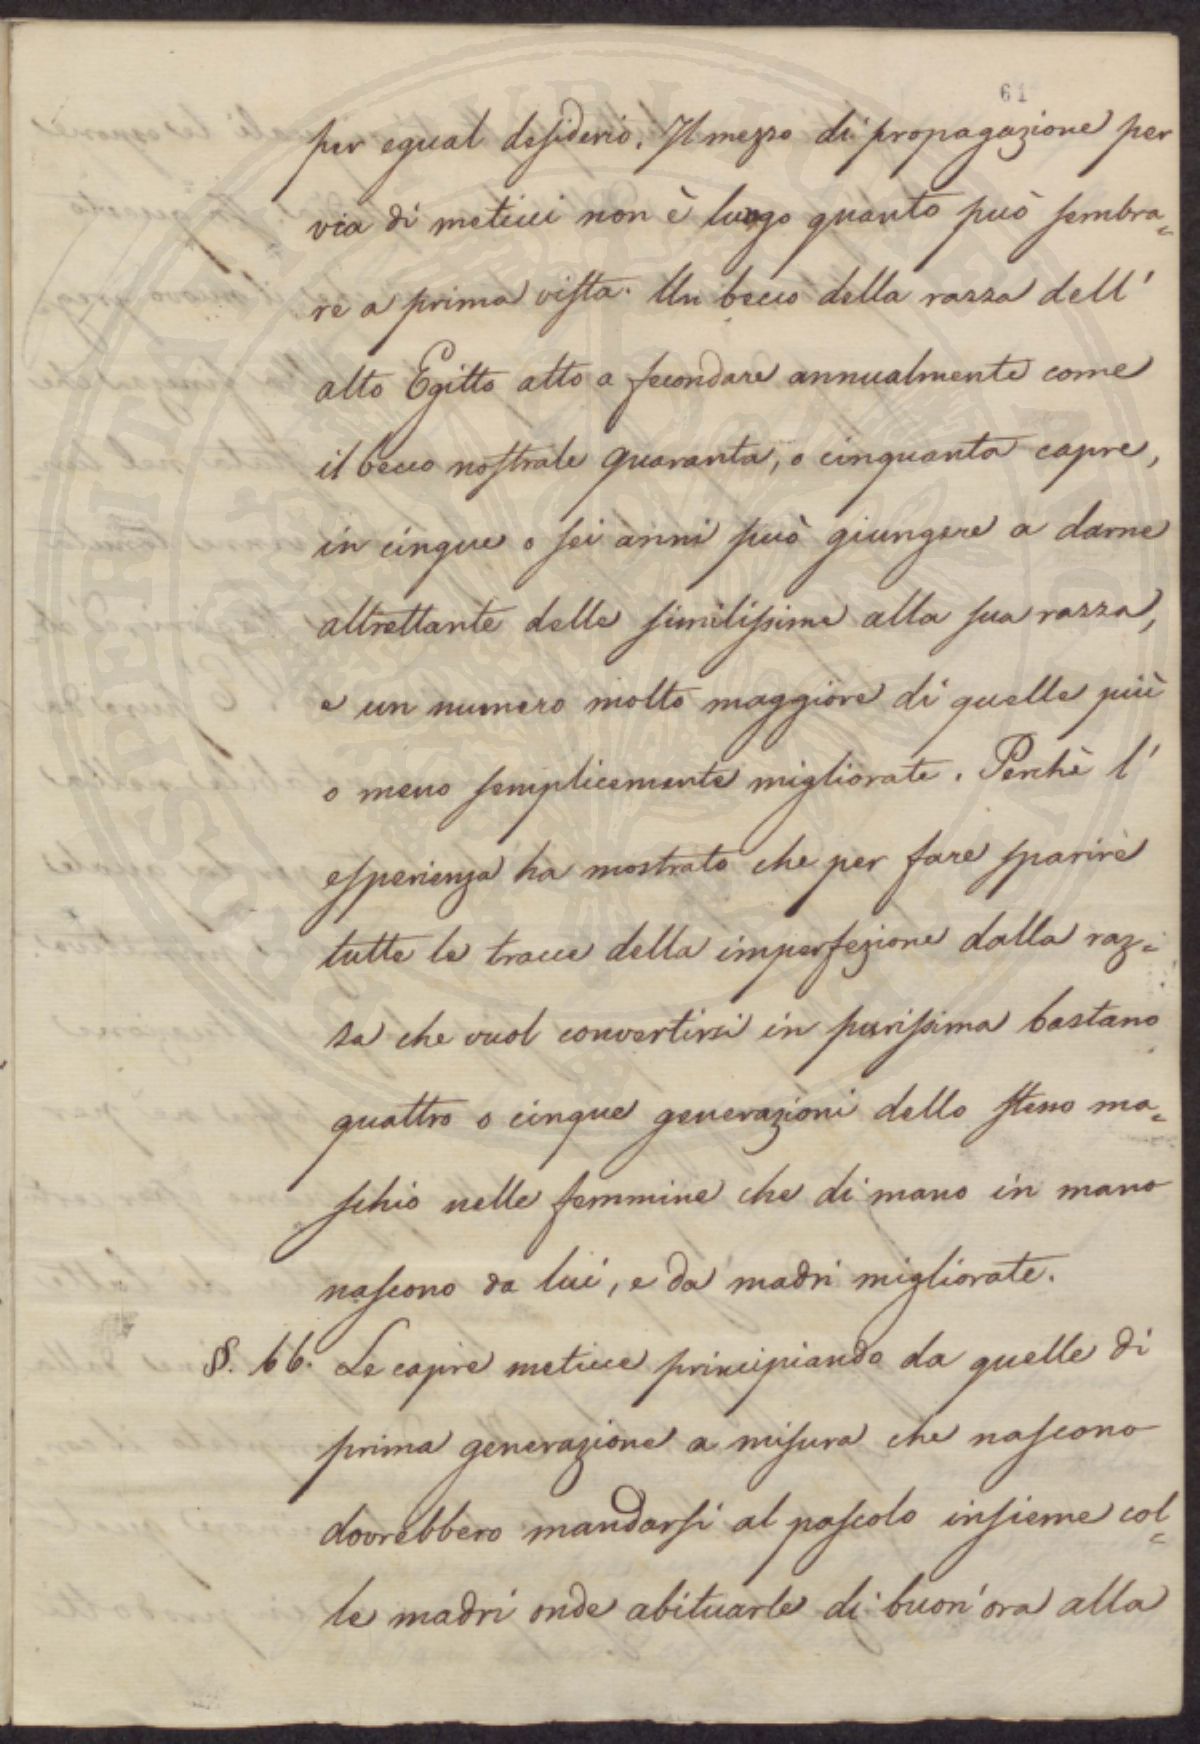 61
per egual desiderio. Il mezzo di propagazione per
via di meticci non è luogo quanto può sembra=
re a prima vista. Un becco della razza dell'
alto Egitto atto a fecondare annualmente come
il becco nostrale quaranta, o cinquanta capre,
in cinque o sei anni può giungere a darne
altrettante delle similissime alla sua razza,
e un numero molto maggiore di quelle più
o meno semplicemente migliorate. Perchè l'
esperienza ha mostrato che per fare sparire
tutte le tracce della imperfezione dalla raz=
za che vuol convertirsi in purissima bastano
quattro o cinque generazioni dello stesso ma=
schio nelle femmine che di mano in mano
nascono da lui, e da madri migliorate.
§. 66. Le capre meticce principiando da quelle di
prima generazione a misura che nascono
dovrebbero mandarsi al pascolo insieme col=
le madri onde abituarle di buon'ora alla